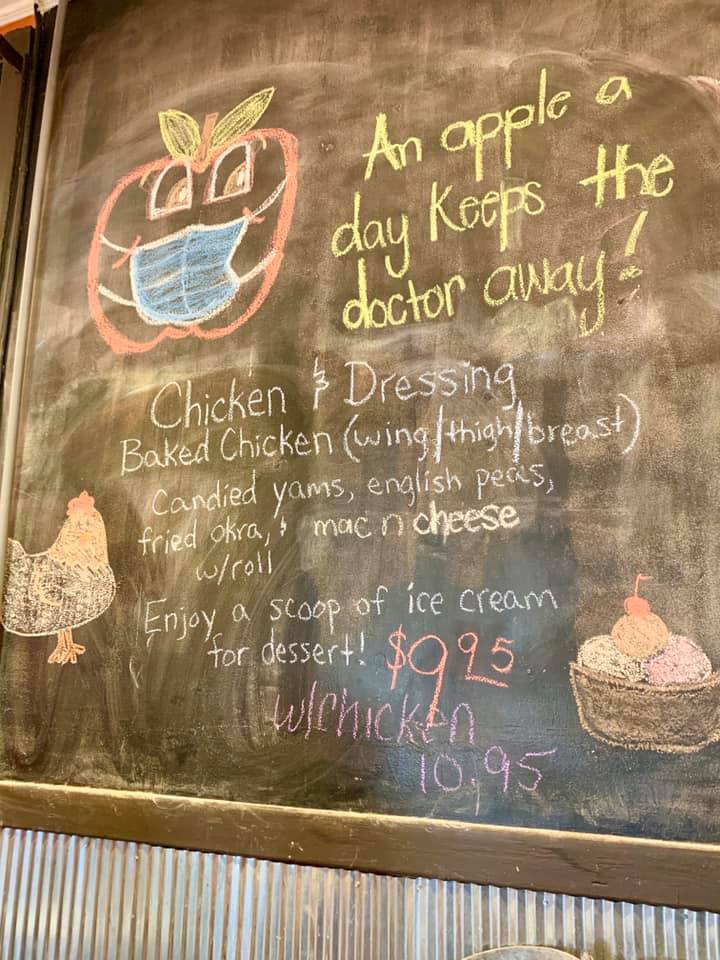 An apple a
day Keeps the
doctor away!
Chicken & Dressing
Baked Chicken (wing/thigh/breast)
Candied yams, english peas,
fried okra, & mac n cheese
w/roll
Enjoy a scoop of ice cream
for dessert! $9.95
w/chicken
10.95